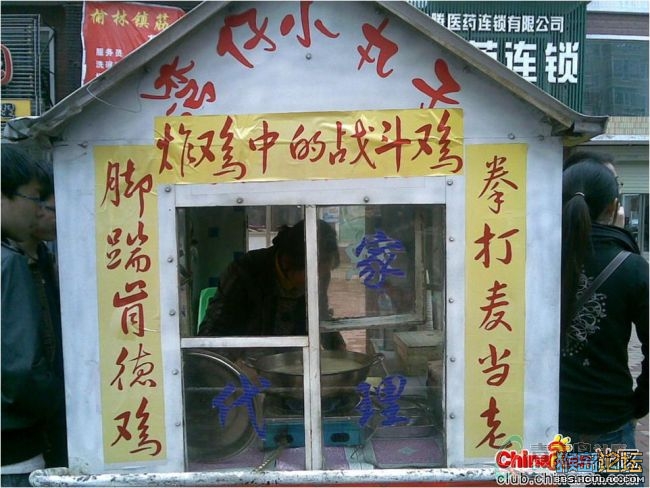 榆林镇筋
服务员
洗碗
医药连锁有限公司
药连锁
炸鸡中的战斗鸡
拳打麦当老
脚踹肯德鸡
家
代理
China
论坛
club.china.com
BBS.HOUDAO.COM